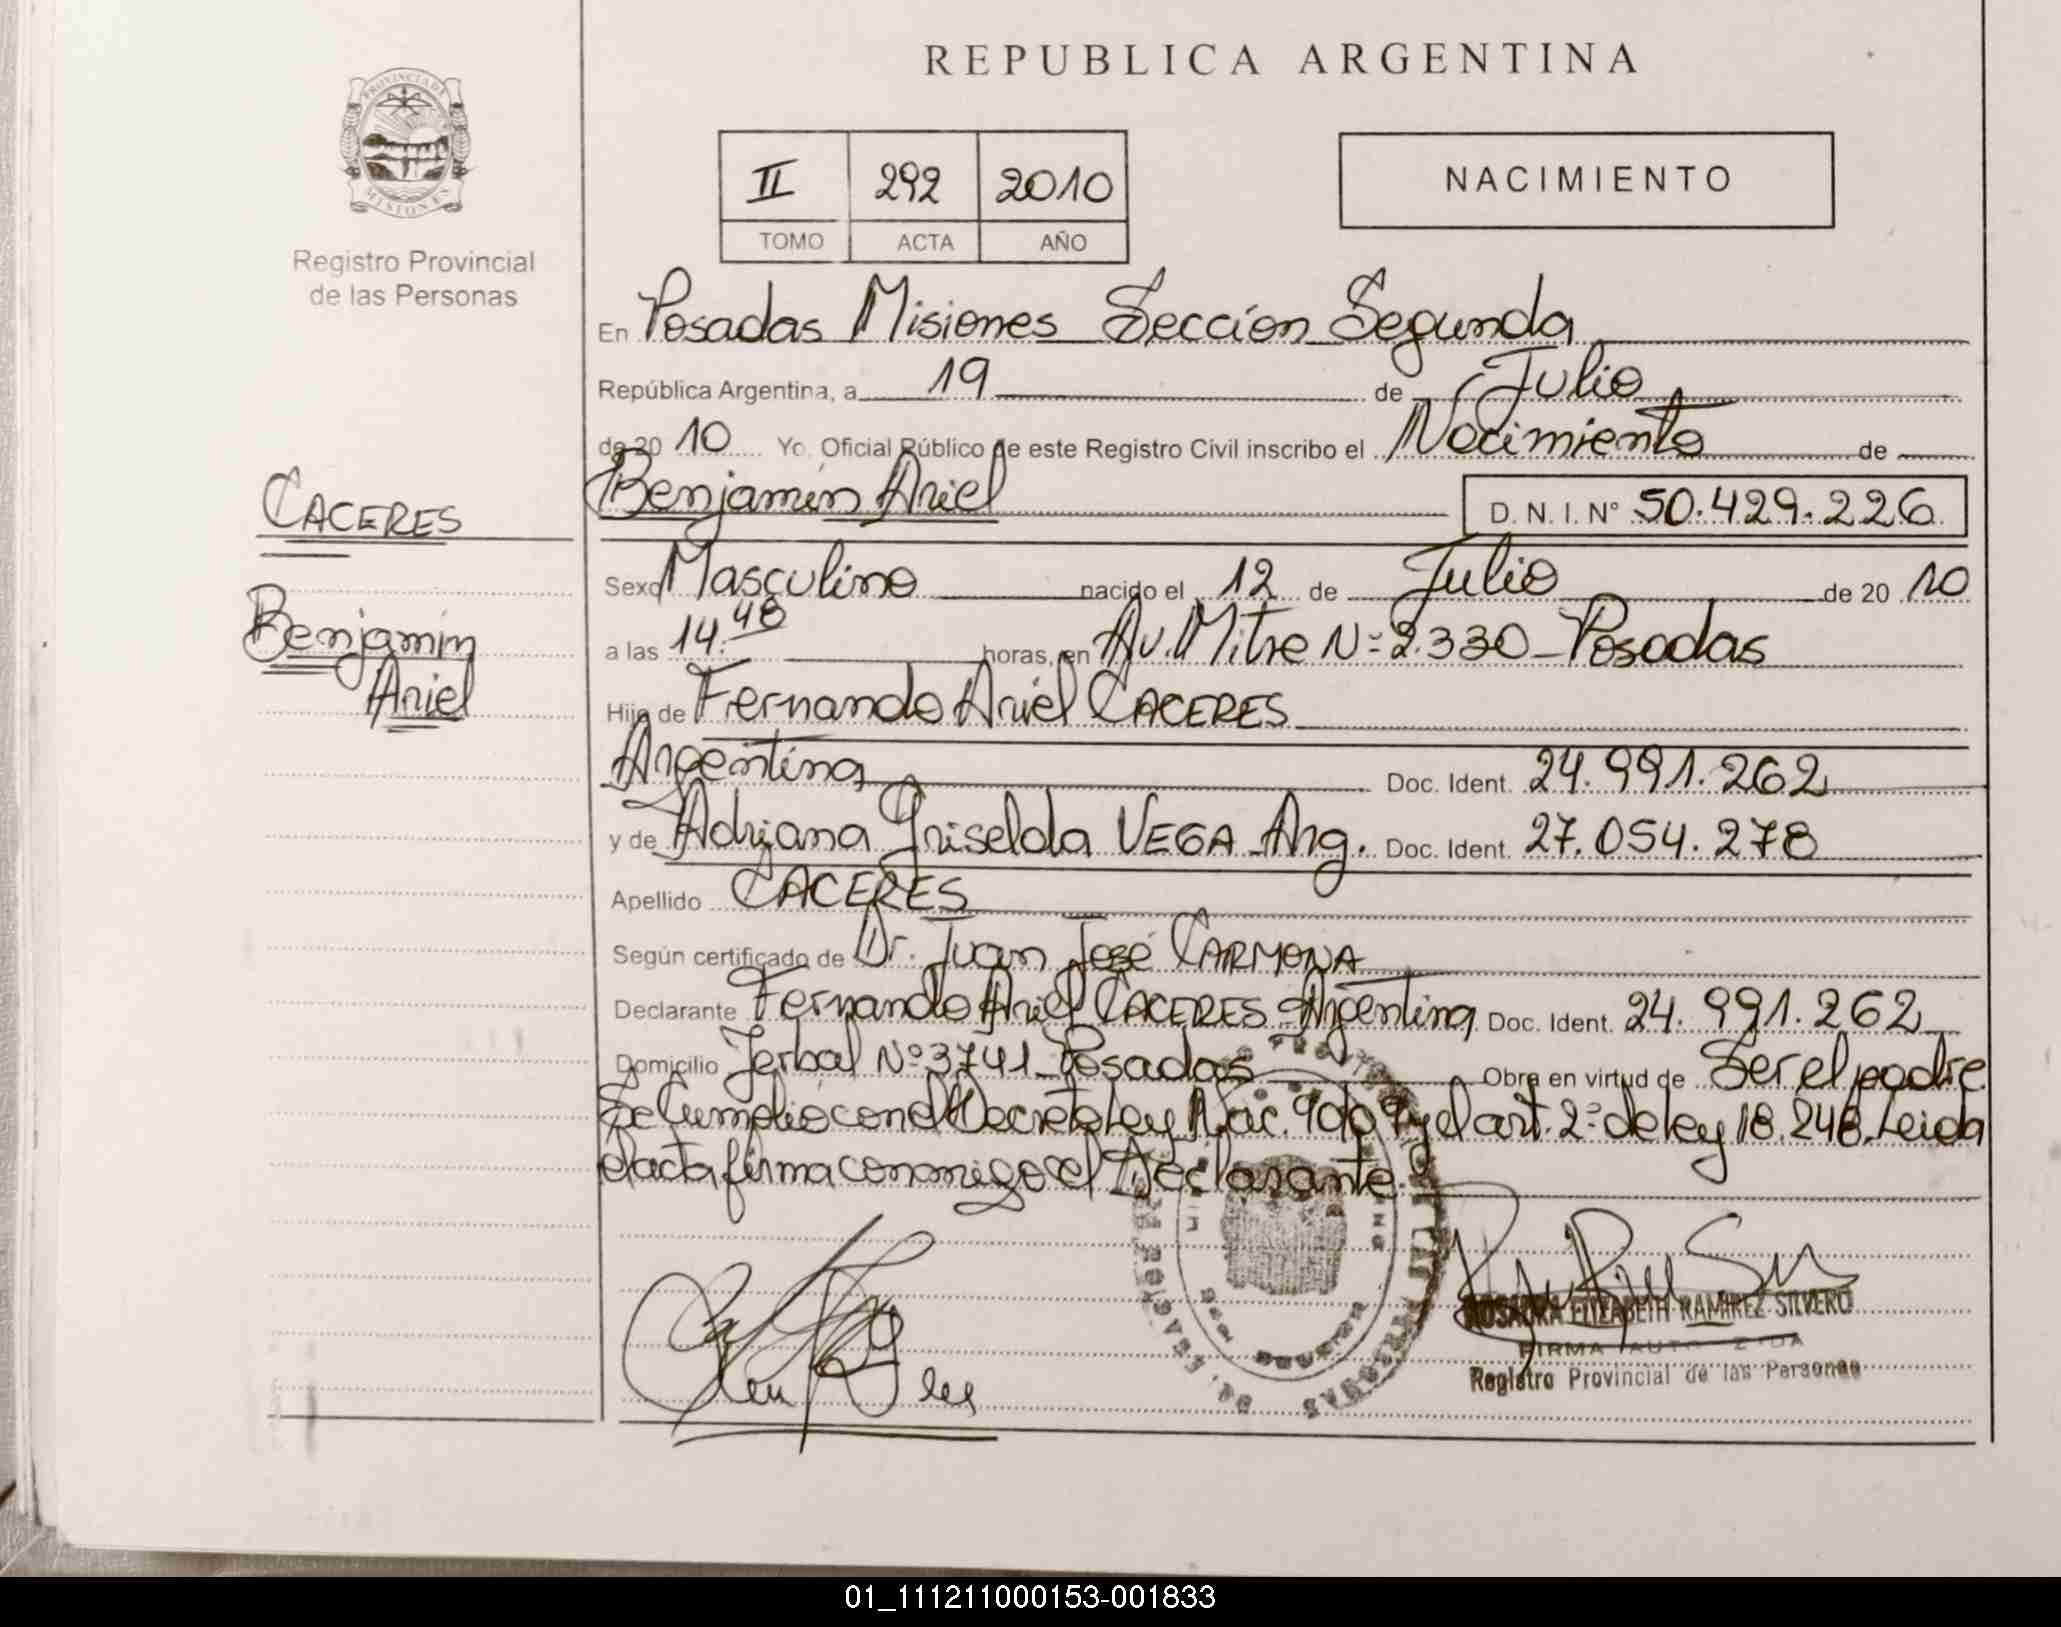 REPUBLICA ARGENTINA
PROVINCIA DE MISIONES
Registro Provincial
de las Personas
II 292 2010
TOMO ACTA AÑO
NACIMIENTO
En Posadas Misiones Sección Segunda
República Argentina, a 19 de Julio
de 20 10 Yo, Oficial Público de este Registro Civil inscribo el Nacimiento de
Benjamín Ariel D. N. I. N° 50.429.226
CACERES
Benjamín
Ariel
Sexo Masculino nacido el 12 de Julio de 20 10
a las 14.48 horas, en Av. Mitre Nº 2.330 - Posadas
Hijo de Fernando Ariel CACERES
Argentina Doc. Ident. 24.991.262
y de Adriana Griselda VEGA - Arg. Doc. Ident. 27.054.278
Apellido CACERES
Según certificado de Dr. Juan José CARMONA
Declarante Fernando Ariel CACERES - Argentina Doc. Ident. 24.991.262
Domicilio Jerbal Nº 3741 - Posadas Obra en virtud de Ser el padre
Se Cumplió con el Decreto Ley Nac. 9009 y el art. 2º de ley 18.248. Leida
el acta firma conmigo el Declarante.
ROSAURA ELIZABETH RAMIREZ SILVERO
FIRMA AUTORIZADA
Registro Provincial de las Personas
01_111211000153-001833